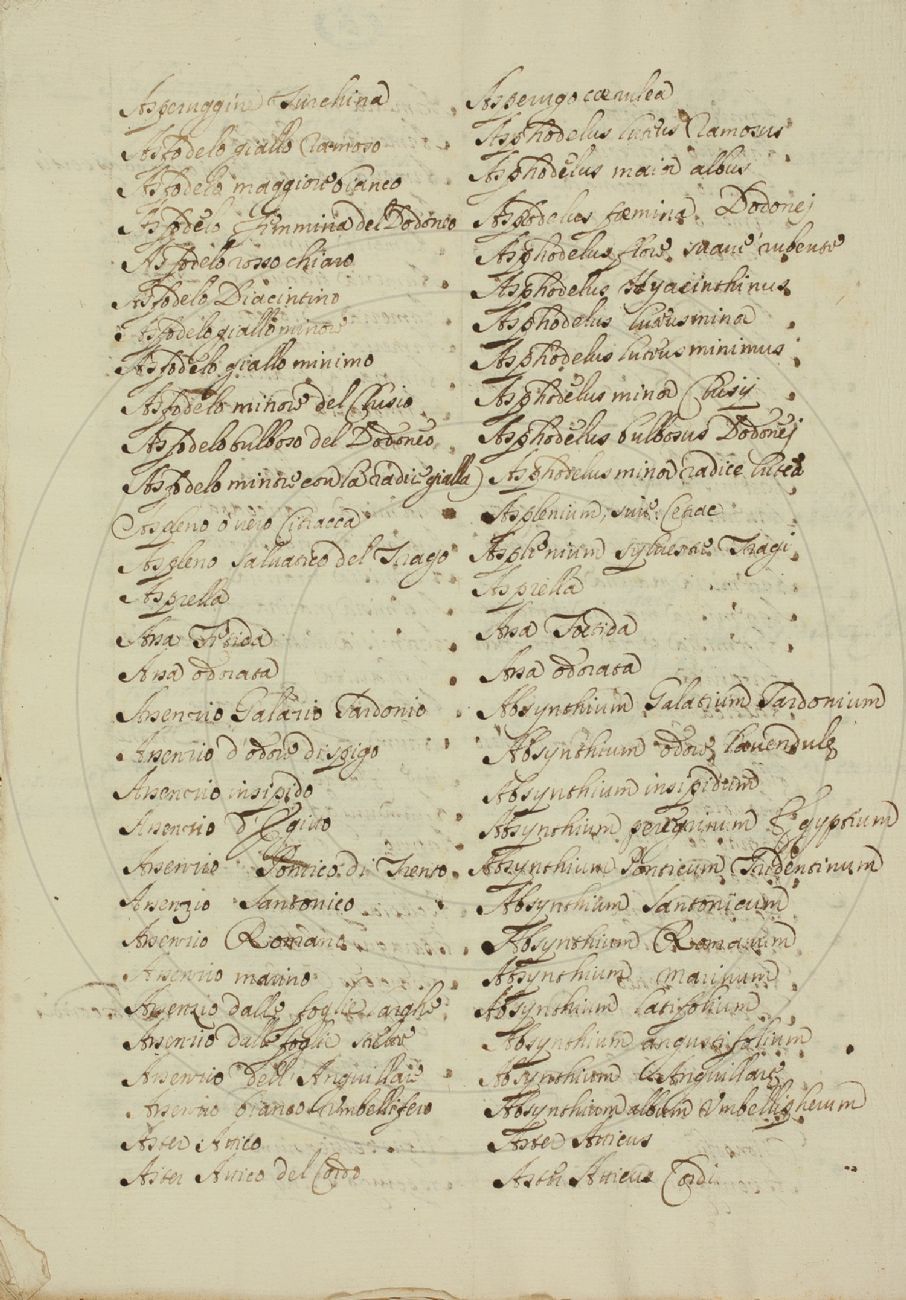 Asperuggine Turchina Asperugo cærulea
Asfodelo giallo Ramoso Asphodelus luteus Ramosus
Asfodelo maggiore bianco Asphodelus maior albus
Asfodelo femmina del Dodoneo Asphodelus fœmina Dodonej
Asfodelo rosso chiaro Asphodelus flore suave rubente
Asfodelo Diacintino Asphodelus Hyacinthinus
Asfodelo giallo minore Asphodelus luteus minor
Asfodelo giallo minimo Asphodelus luteus minimus
Asfodelo minore del Clusio Asphodelus minor Clusij
Asfodelo bulboso del Dodoneo Asphodelus bulbosus Dodonej
Asfodelo minore con la radice gialla Asphodelus minor radice lutea
Aspleno overo Citracca Asplenium sive Cetrac
Aspleno salvatico del Trago Asplenium sylvestre Tragi
Asprella Asprella
Assa Fetida Assa Foetida
Assa odorata Assa odorata
Assentio Galatio Sardonio Absynthium Galatium Sardonium
Assentio d'odore di spigo Absynthium odore lavendulę
Assentio insipido Absynthium insipidum
Assentio d'Egitto Absynthium peregrinum Ægyptium
Assentio Pontico di Trento Absynthium Ponticum Tridentinum
Assenzio Santonico Absynthium Santonicum
Assentio Romano Absynthium Romanum
Assentio marino Absynthium marinum
Assenzio dalle foglie larghe Absynthium latifolium
Assentio dalle foglie strette Absynthium angustifolium
Assentio dell'Anguillare Absynthium Anguillarę
Assentio bianco umbellifero Absynthium album Umbelligherum
Aster Attico Aster Atticus
Aster Attico del Cordo Aster Atticus Cordi